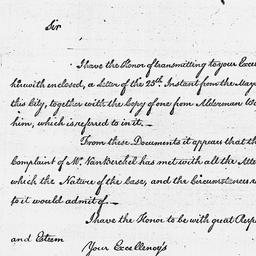 Sir
I have the Honor of transmitting to your Exce
herewith enclosed, a Letter of the 25th Instant from the May
this City, together with the Copy of one from Alderman W
him, which is referred to in it._
From these Documents it appears that th
Complaint of Mr. Vanberchel has met with all the Atte
which the Nature of the Case, and the Circumstances
to it would admit of._
I have the Honor to be with great Resp
and Esteem
Your Excellency's